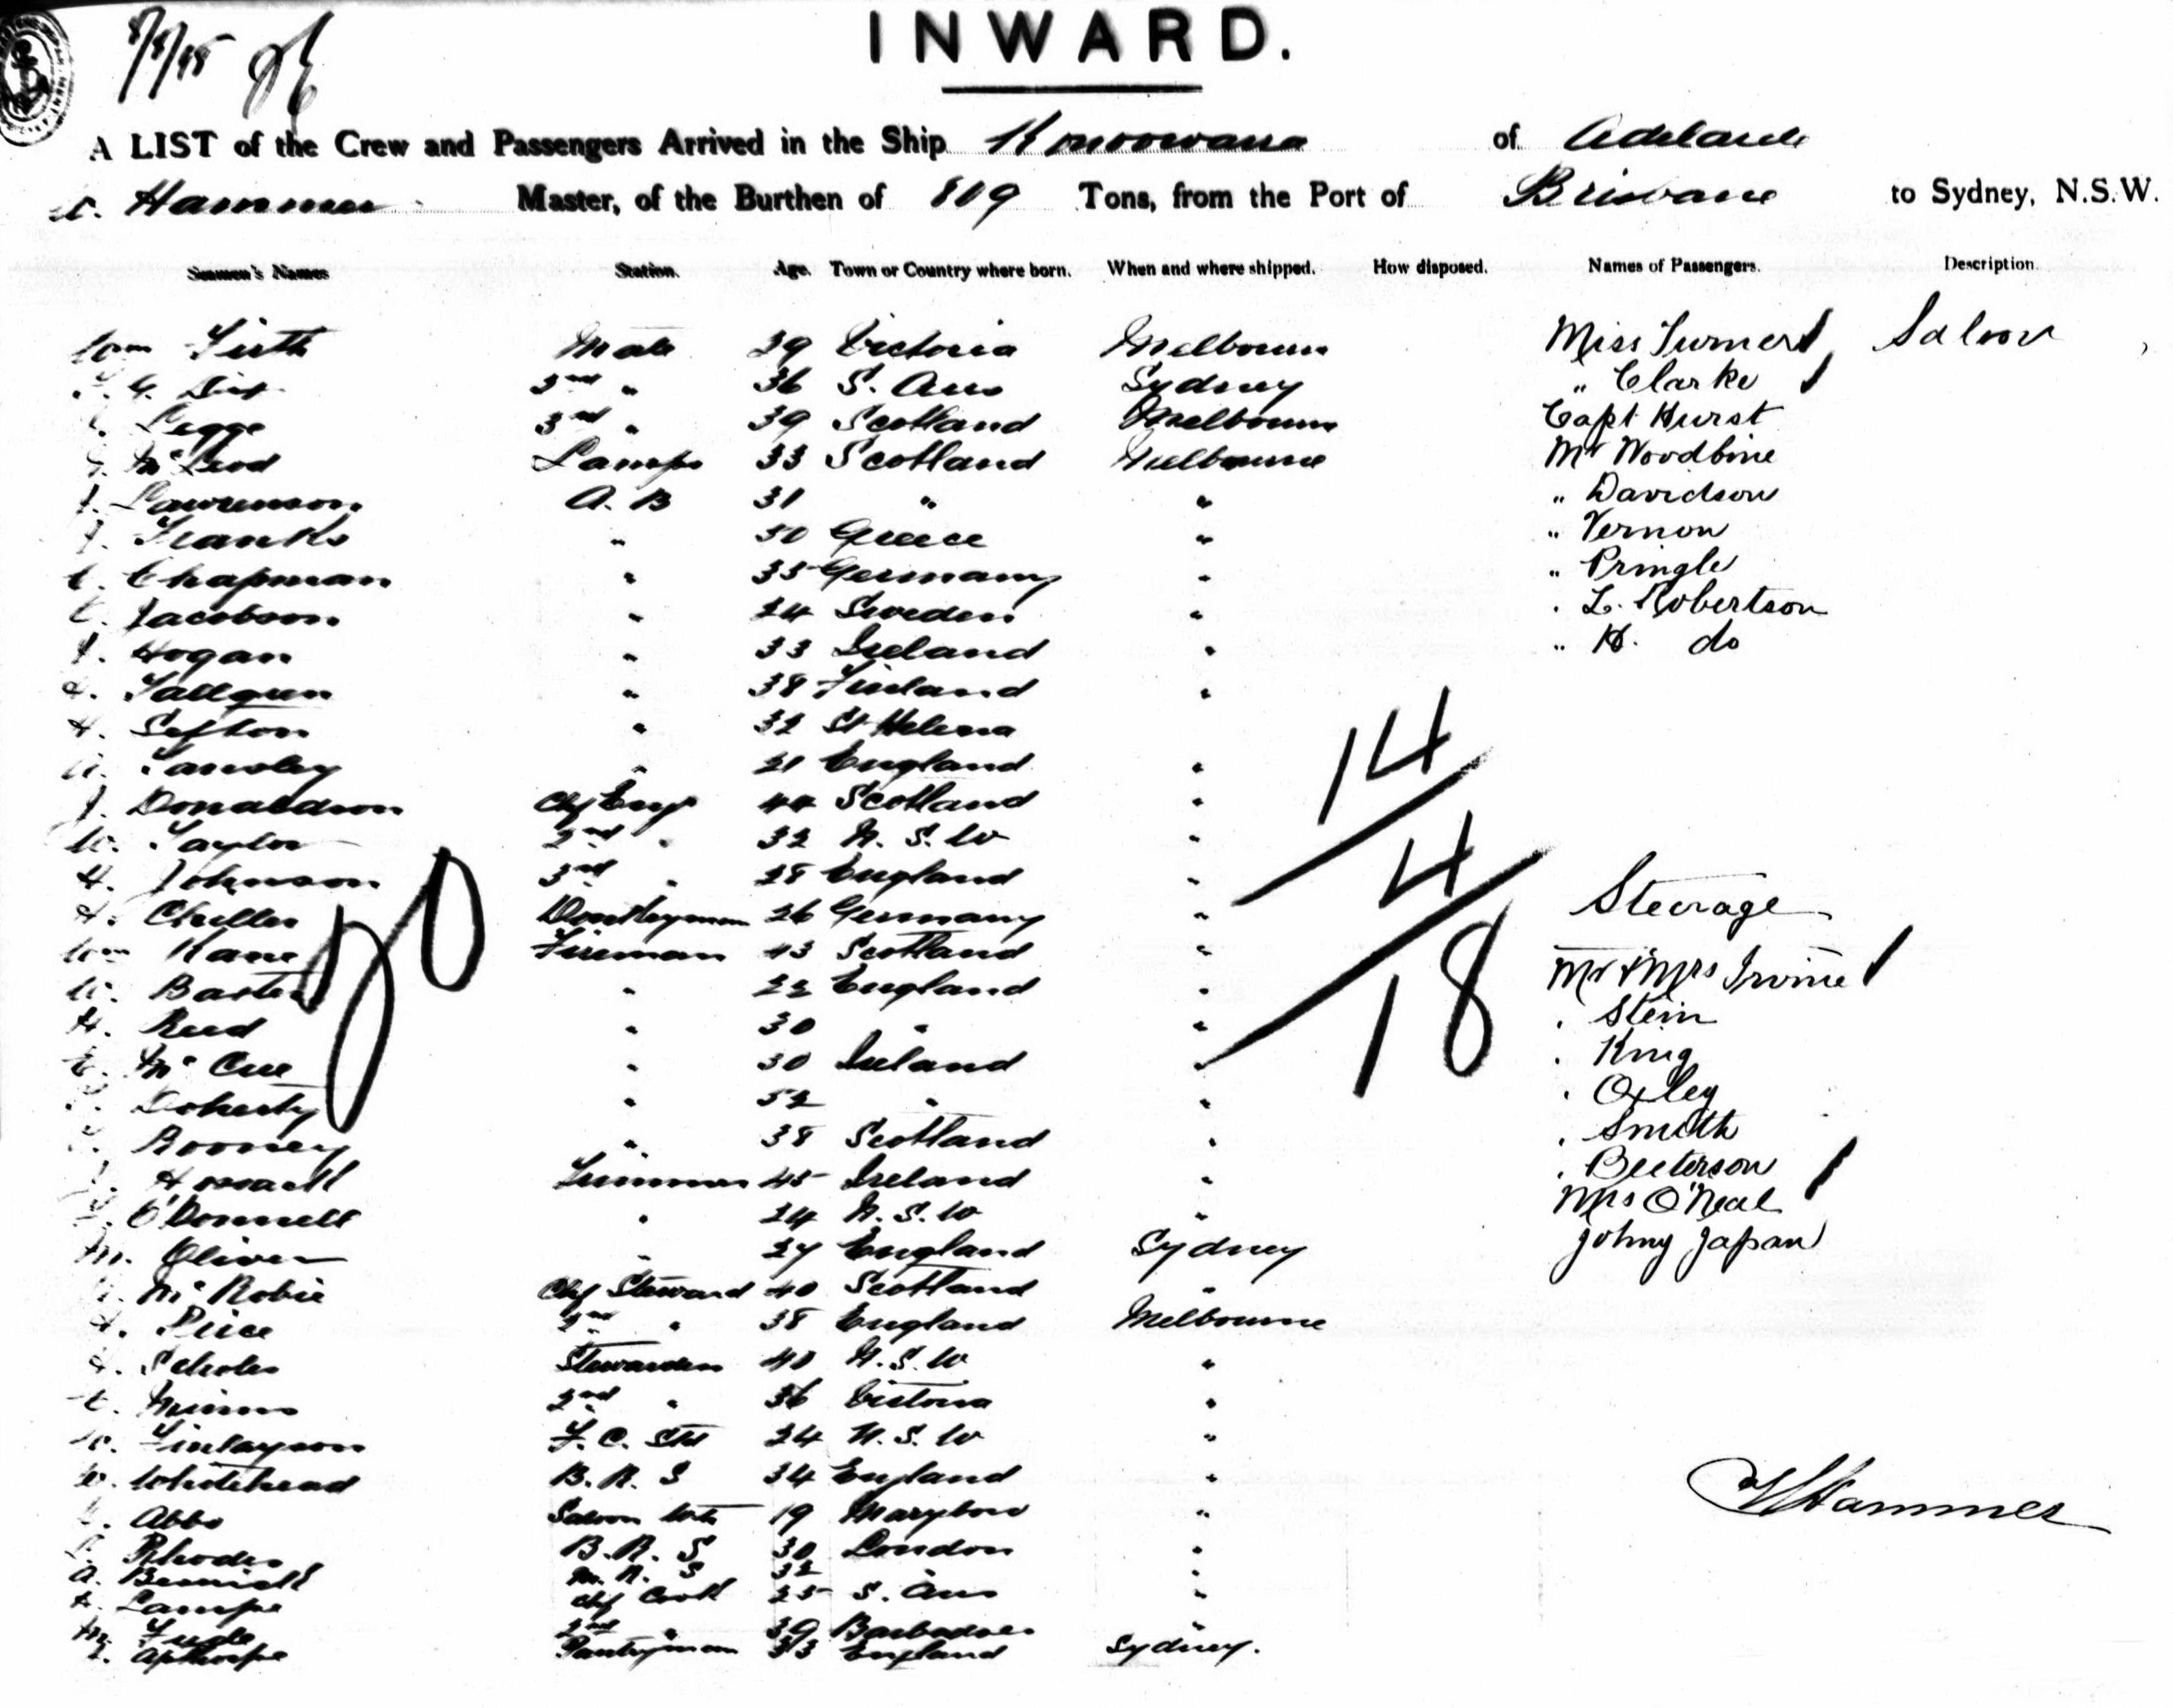 INWARD.
A LIST of the Crew and Passengers Arrived in the Ship Konoowarra of Adelaide
Hammer Master, of the Burthen of 809 Tons, from the Port of Brisbane to Sydney, N.S.W.
Seamen's Names Station. Age. Town or Country where born. When and where shipped. How disposed. Names of Passengers. Description.
Wm Firth Mate 39 Victoria Melbourne Miss Turner Saloon
2nd " 36 S. Aus Sydney " Clarke
Legge 3rd " 39 Scotland Melbourne Capt Hurst
McLeod Lamps 33 Scotland Melbourne Mr Woodbine
Lawrenson A.B 31 " " " Davidson
Franks " 50 Greece " " Vernon
Chapman " 35 Germany " " Pringle
Jacobson " 24 Sweden " " L. Robertson
Hogan " 33 Ireland " " H. do
" 38 Finland "
Sefton " 32 St Helena
" 21 England "
J. Donaldson Chf Engr 44 Scotland "
Taylor 2nd " 32 N.S.W "
Johnson 3rd " 28 England "
Donkeyman 26 Germany " Steerage
Wm Kane Fireman 43 Scotland " Mr & Mrs Irvine
" 22 England " " Stein
H. Reed " 30 " " " King
McCue " 30 Ireland " " Oxley
Doherty " 52 " " " Smith
Rooney " 38 Scotland " " Beeterson
Trimmer 45 Ireland " Mrs O'Neal
O'Donnell " 24 N.S.W " Johny Japan
M. Oliver " 27 England Sydney
McRobie Chf Steward 40 Scotland "
Price 2nd " 38 England Melbourne
Scholes Stewardess 40 N.S.W "
2nd " 36 Victoria "
Finlayson F.C. Std 24 N.S.W "
Whitehead B.R.S 34 England "
Abbo Saloon 19 "
Rhodes B.R.S 30 London "
M.R.S 32 "
Lampe Chf Cook 25 S. Aus "
2nd " 39 Barbadoes
Apthorpe Pantryman 33 England Sydney.
14
4
18
Hammer